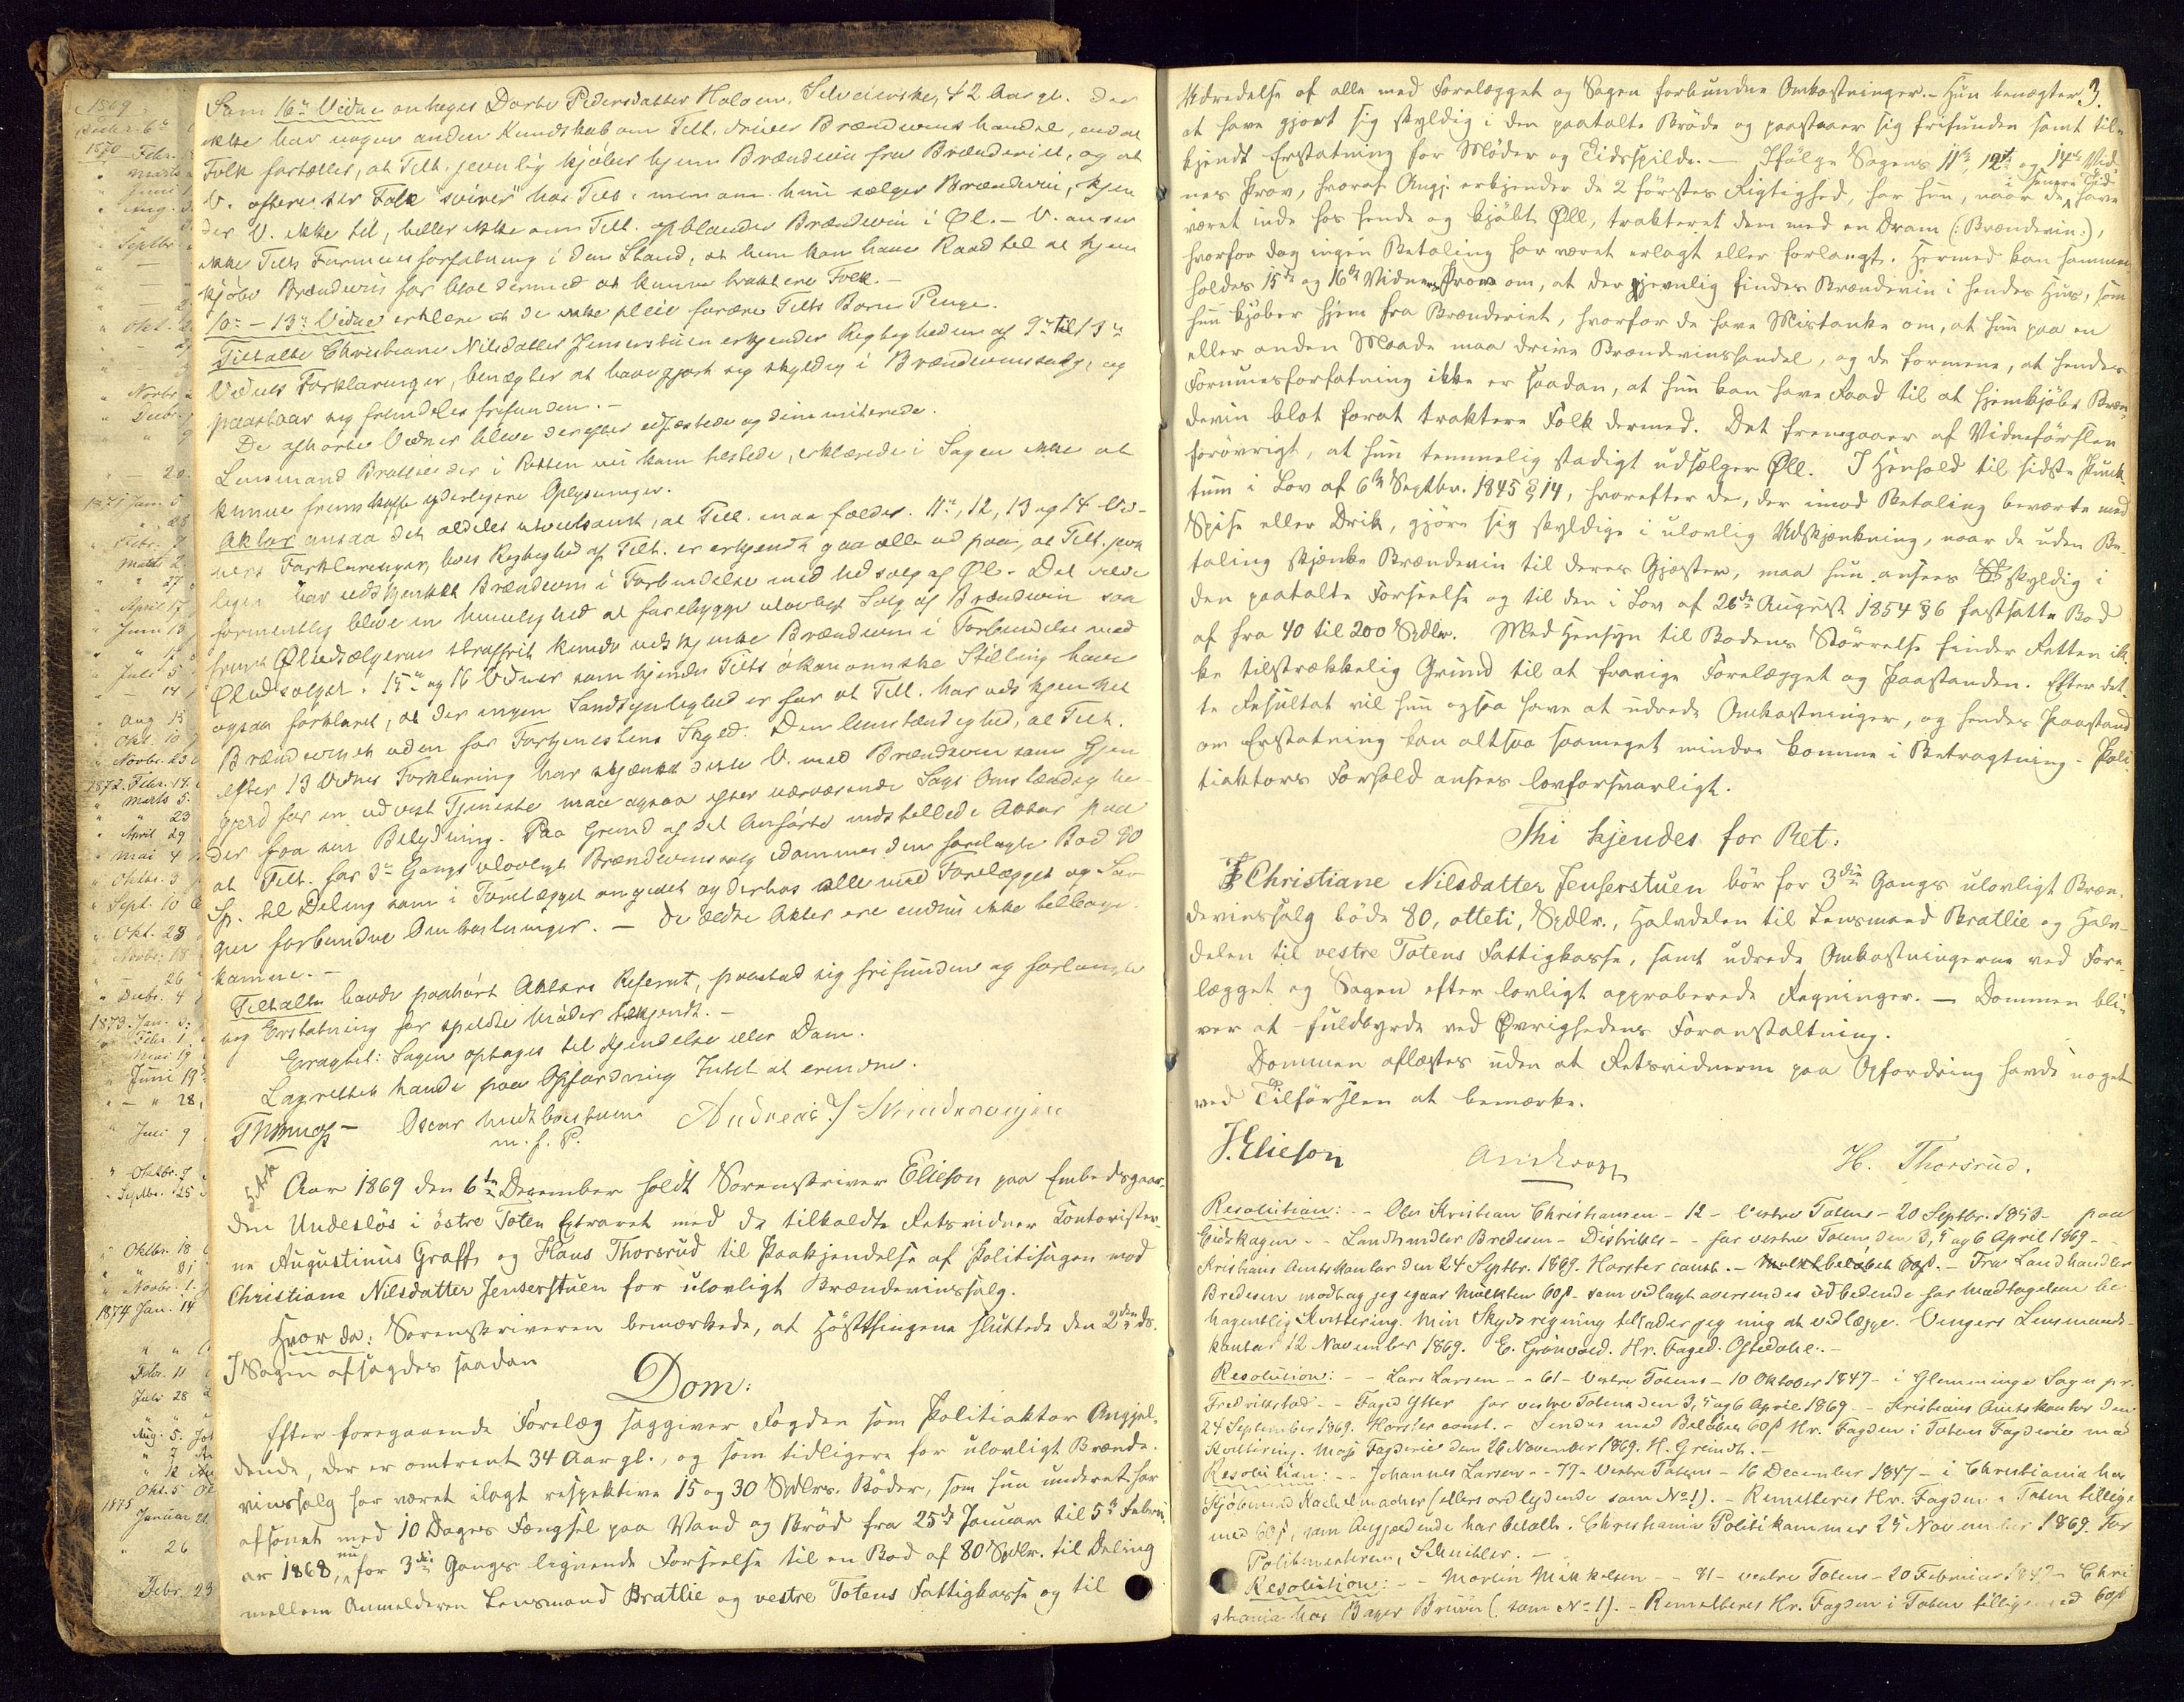 1869
Decbr. 6
1870 Febr.
" Marts
" Juni
" Aug.
" Septbr.
" Okt.
" Novbr.
" Decbr.
" — 20
1871 Jan. 5
" " 28
" Febr. 7
" Marts 2
" " 27
" April 17
" Juni 13
" " 14
" Juli 5
" — 14
" Aug 15
" Okt. 10
" Novbr. 23
1872. Febr. 14.
" Marts 5.
" " 23
" April 29
" Mai 4
" Oktbr. 3
" Sept. 10
" Okt. 28
" Novbr. 18
" — 26
" Decbr. 4
1873. Jan.
" Febr. 1.
" Mai 19
" Juni 19
" — " 28.
" Juli 9
" Oktbr. 7
" Septbr. 25
" Oktbr. 18
" " 31
" Novbr. 1.
1874 Jan. 14
" Febr. 11
Juli 28
Aug. 5.
" 7
" 12
Okt. 5
1875
Januar 21.
" 26
Febr. 23
Som 16de Vidne anteges Dorthe Pedersdatter Holoen, Selveierske, 42 Aar gl. der
ikke har nogen anden Kundskab om Tilt. driver Brændevinshandel, end at
Folk fortæller, at Tilt. jevnlig kjøber hjem Brændevin fra Brænderiet, og at
V. oftere ser Folk "svirer" hos Tilt., men om hun sælger Brændevin, kjen
der V. ikke til, heller ikke om Tilt. opblander Brændevin i Øl. — V. anser
ikke Tilts Formuesforfatning i den Stand, at hun kan have Raad til at hjem
kjøbe Brændevin for blot dermed at kunne traktere Folk. —
10de – 13de Vidne erklære at de ikke pleie forære Tilts Børn Penge.
Tiltalte Christiane Nilsdatter Jenserstuen erkjender Rigtigheden af 9de til 13de
Vidnes Forklaringer, benægter at have gjort sig skyldig i Brændevinssalg, og
paastaar sig fremdeles frifunden. —
De afhørte Vidner bleve derefter edfæstede og dimitterede.
Lensmand Bratlie der i Retten var kom tilstede, erklærede i Sagen ikke at
kunne fremskaffe yderligere Oplysninger.
Aktor ansaa det aldeles utvivlsomt, at Tilt. maa fældes. 11te, 12, 13 og 14 Vid-
ners Forklaringer, hvis Rigtighed af Tilt. er erkjendt gaa alle ud paa, at Tilt. jevn
ligen har udskjænket Brændevin i Forbindelse med Udsalg af Øl. — Det vilde
formentlig blive en Umulighed at forebygge ulovligt Salg af Brændevin saa
fremt Øludsælgeren straffrit kunde udskjænke Brændevin i Forbindelse med
Øludsalget. 15de og 16 Vidner som kjender Tilts økonomiske Stilling have
ogsaa forklaret, at der ingen Sandsynlighed er for at Tilt. har udskjenket
Brændevinet uden for Fortjenestens Skyld. Den Omstændighed, at Tilt.
efter 13 Vidnes Forklaring har skjænket dette V. med Brændevin som Gjen
gjæld for en udvist Tjeneste maa ogsaa efter nærværende Sags Omstændighe-
der faa sin Betydning. Paa Grund af det Anførte indstillede Aktor paa
at Tilt. for 3die Gangs ulovligt Brændevinssalg idømmes den forelagte Bod 80
Sp. til Deling som i Forelægget angivet og derhos alle med Forelægget og Sa-
gen forbundne Omkostninger. — De ældre Akter ere endnu ikke tilbage
komne. —
Tiltalte havde paahørt Aktors Referat, paastod sig frifunden og forlangte
sig Erstatning for spildte Møder tilkjendt. —
Eragtet: Sagen optages til Kjendelse eller Dom.
Lagretten havde paa Opfordring Intet at erindre.
Oscar
m. f. P.
Andreas J. Skindrovejen
Aar 1869 den 6te December holdt Sorenskriver Elieson paa Embedsgaar-
den Undeslös i östre Toten Extraret med de tilkaldte Retsvidner Contorister-
ne Augustinus Graff og Hans Thorsrud til Paakjendelse af Politisagen mod
Christiane Nilsdatter Jenserstuen for ulovligt Brændevinssalg.
Hvor da: Sorenskriveren bemærkede, at Høstthingene sluttede den 2den ds.
I Sagen afsagdes saadan
Dom:
Efter foregaaende Forelæg saggiver Fogden som Politiaktor Angjel-
dende, der er omtrent 34 Aar gl., og som tidligere for ulovligt Brænde-
vinssalg har været ilagt respektive 15 og 30 Spdlrs. Bøder, som hun underet har
afsonet med 10 Dages Fængsel paa Vand og Brød fra 25de Januar til 5te Febru-
ar 1868, nu for 3die Gangs lignende Forseelse til en Bod af 80 Spdlr. til Deling
mellem Anmelderen Lensmand Bratlie og vestre Totens Fattigkasse og til
3.
Udredelse af alle med Forelægget og Sagen forbundne Omkostninger. — Hun benægter
at have gjort sig skyldig i den paatalte Brøde og paastaaer sig frifunden samt til-
kjendt Erstatning for Møder og Tidsspilde. — Ifølge Sagens 11te, 12te og 14de Vid-
nes Prov, hvoraf Angj. erkjender de 2 førstes Rigtighed, har hun, naar de i senere Tid have
været inde hos hende og kjøbt Øll, trakteret dem med en Dram (: Brændevin:),
hvorfor dog ingen Betaling har været erlagt eller forlangt. Hermed kan sammen-
holdes 15de og 16de Vidners Prov om, at der jevnlig findes Brændevin i hendes Hus, som
hun kjøber hjem fra Brænderiet, hvorfor de have Mistanke om, at hun paa en
eller anden Maade maa drive Brændevinshandel, og de formene, at hendes
Formuesforfatning ikke er saadan, at hun kan have Raad til at hjemkjøbe Bræn-
devin blot forat traktere Folk dermed. Det fremgaaer af Vidneførslen
forøvrigt, at hun temmelig stadigt udsælger Øll. I Henhold til sidste Punk-
tum i Lov af 6te Septbr. 1845 § 14, hvorefter de, der imod Betaling beværte med
Spise eller Drik, gjøre sig skyldige i ulovlig Udskjænkning, naar de uden Be-
taling skjænke Brændevin til deres Gjæster, maa hun ansees skyldig i
den paatalte Forseelse og til den i Lov af 26de August 1854 § 6 fastsatte Bod
af fra 40 til 200 Spdlr. Med Hensyn til Bodens Størrelse finder Retten ik-
ke tilstrækkelig Grund til at fravige Forelægget og Paastanden. Efter det-
te Resultat vil hun ogsaa have at udrede Omkostninger, og hendes Paastand
om Erstatning kan altsaa saameget mindre komme i Betragtning. — Poli-
tiaktors Forhold ansees lovforsvarligt.
Thi kjendes for Ret:
Christiane Nilsdatter Jenserstuen bör for 3die Gangs ulovligt Bræn-
devinssalg böde 80, otteti, Spdlr., Halvdelen til Lensmand Bratlie og Halv-
delen til vestre Totens Fattigkasse, samt udrede Omkostningerne ved Fore-
lægget og Sagen efter lovligt approberede Regninger. — Dommen bli-
ver at fuldbyrde ved Øvrighedens Foranstaltning.
Dommen oplæstes uden at Retsvidnerne paa Opfordring havde noget
ved Tilførslen at bemærke.
J. Elieson
H. Thorsrud.
Resolution: - - Ole Kristian Christiansen - 12 - Vestre Totens - 20 Septbr. 1848 - paa
Eidskogen - - Landhandler Bredesen - Distrikts - - for vestre Toten den 3, 5 og 6 April 1869 - -
Kristians Amtskontor den 24 Septbr. 1869. Horster const. - Mulktbeløbet 60ß. - Fra Landhandler
Bredesen modtog jeg igaar Mulkten 60ß. som vedlagt oversendes udbedende for Modtagelsen be-
hagentlig Kvittering. Min Skydsregning tillader jeg mig at vedlægge. Vingers Lensmands-
kontor 12 November 1869. E. Grönvold. Hr. Foged Oftedahl. -
Resolution: - - Lars Larsen - - 61 - Vestre Totens - 10 Oktober 1847 - i Glemminge Sogn pr.
Fredrikstad - - Foged Ytter for vestre Totens den 3, 5 og 6 April 1869 - - Kristians Amtskontor den
24 September 1869. Horster const. - Sendes med Beløbet 60ß Hr. Fogden i Toten Fogderie mod
Kvittering. Moss Fogderie den 26 November 1869. H. Greindt. -
Resolution: - - Johannes Larsen - - 77 - Vestre Totens - 16 December 1847 - i Christiania hos
Kjøbmand Kachelmacher (ellers ordlydende som No 1). - Remitteres Hr. Fogden i Toten tillige
med 60ß, som Angjældende har betalt. Christiania Politikammer 25 November 1869. For
Politimesteren,
Resolution: - - Martin Mikkelsen - - 81 - vestre Toten - 20 Februar 1847 - Chri
stiania hos Bager Bruun (som No 1). - Remitteres Hr. Fogden i Toten tilligemed 60ß